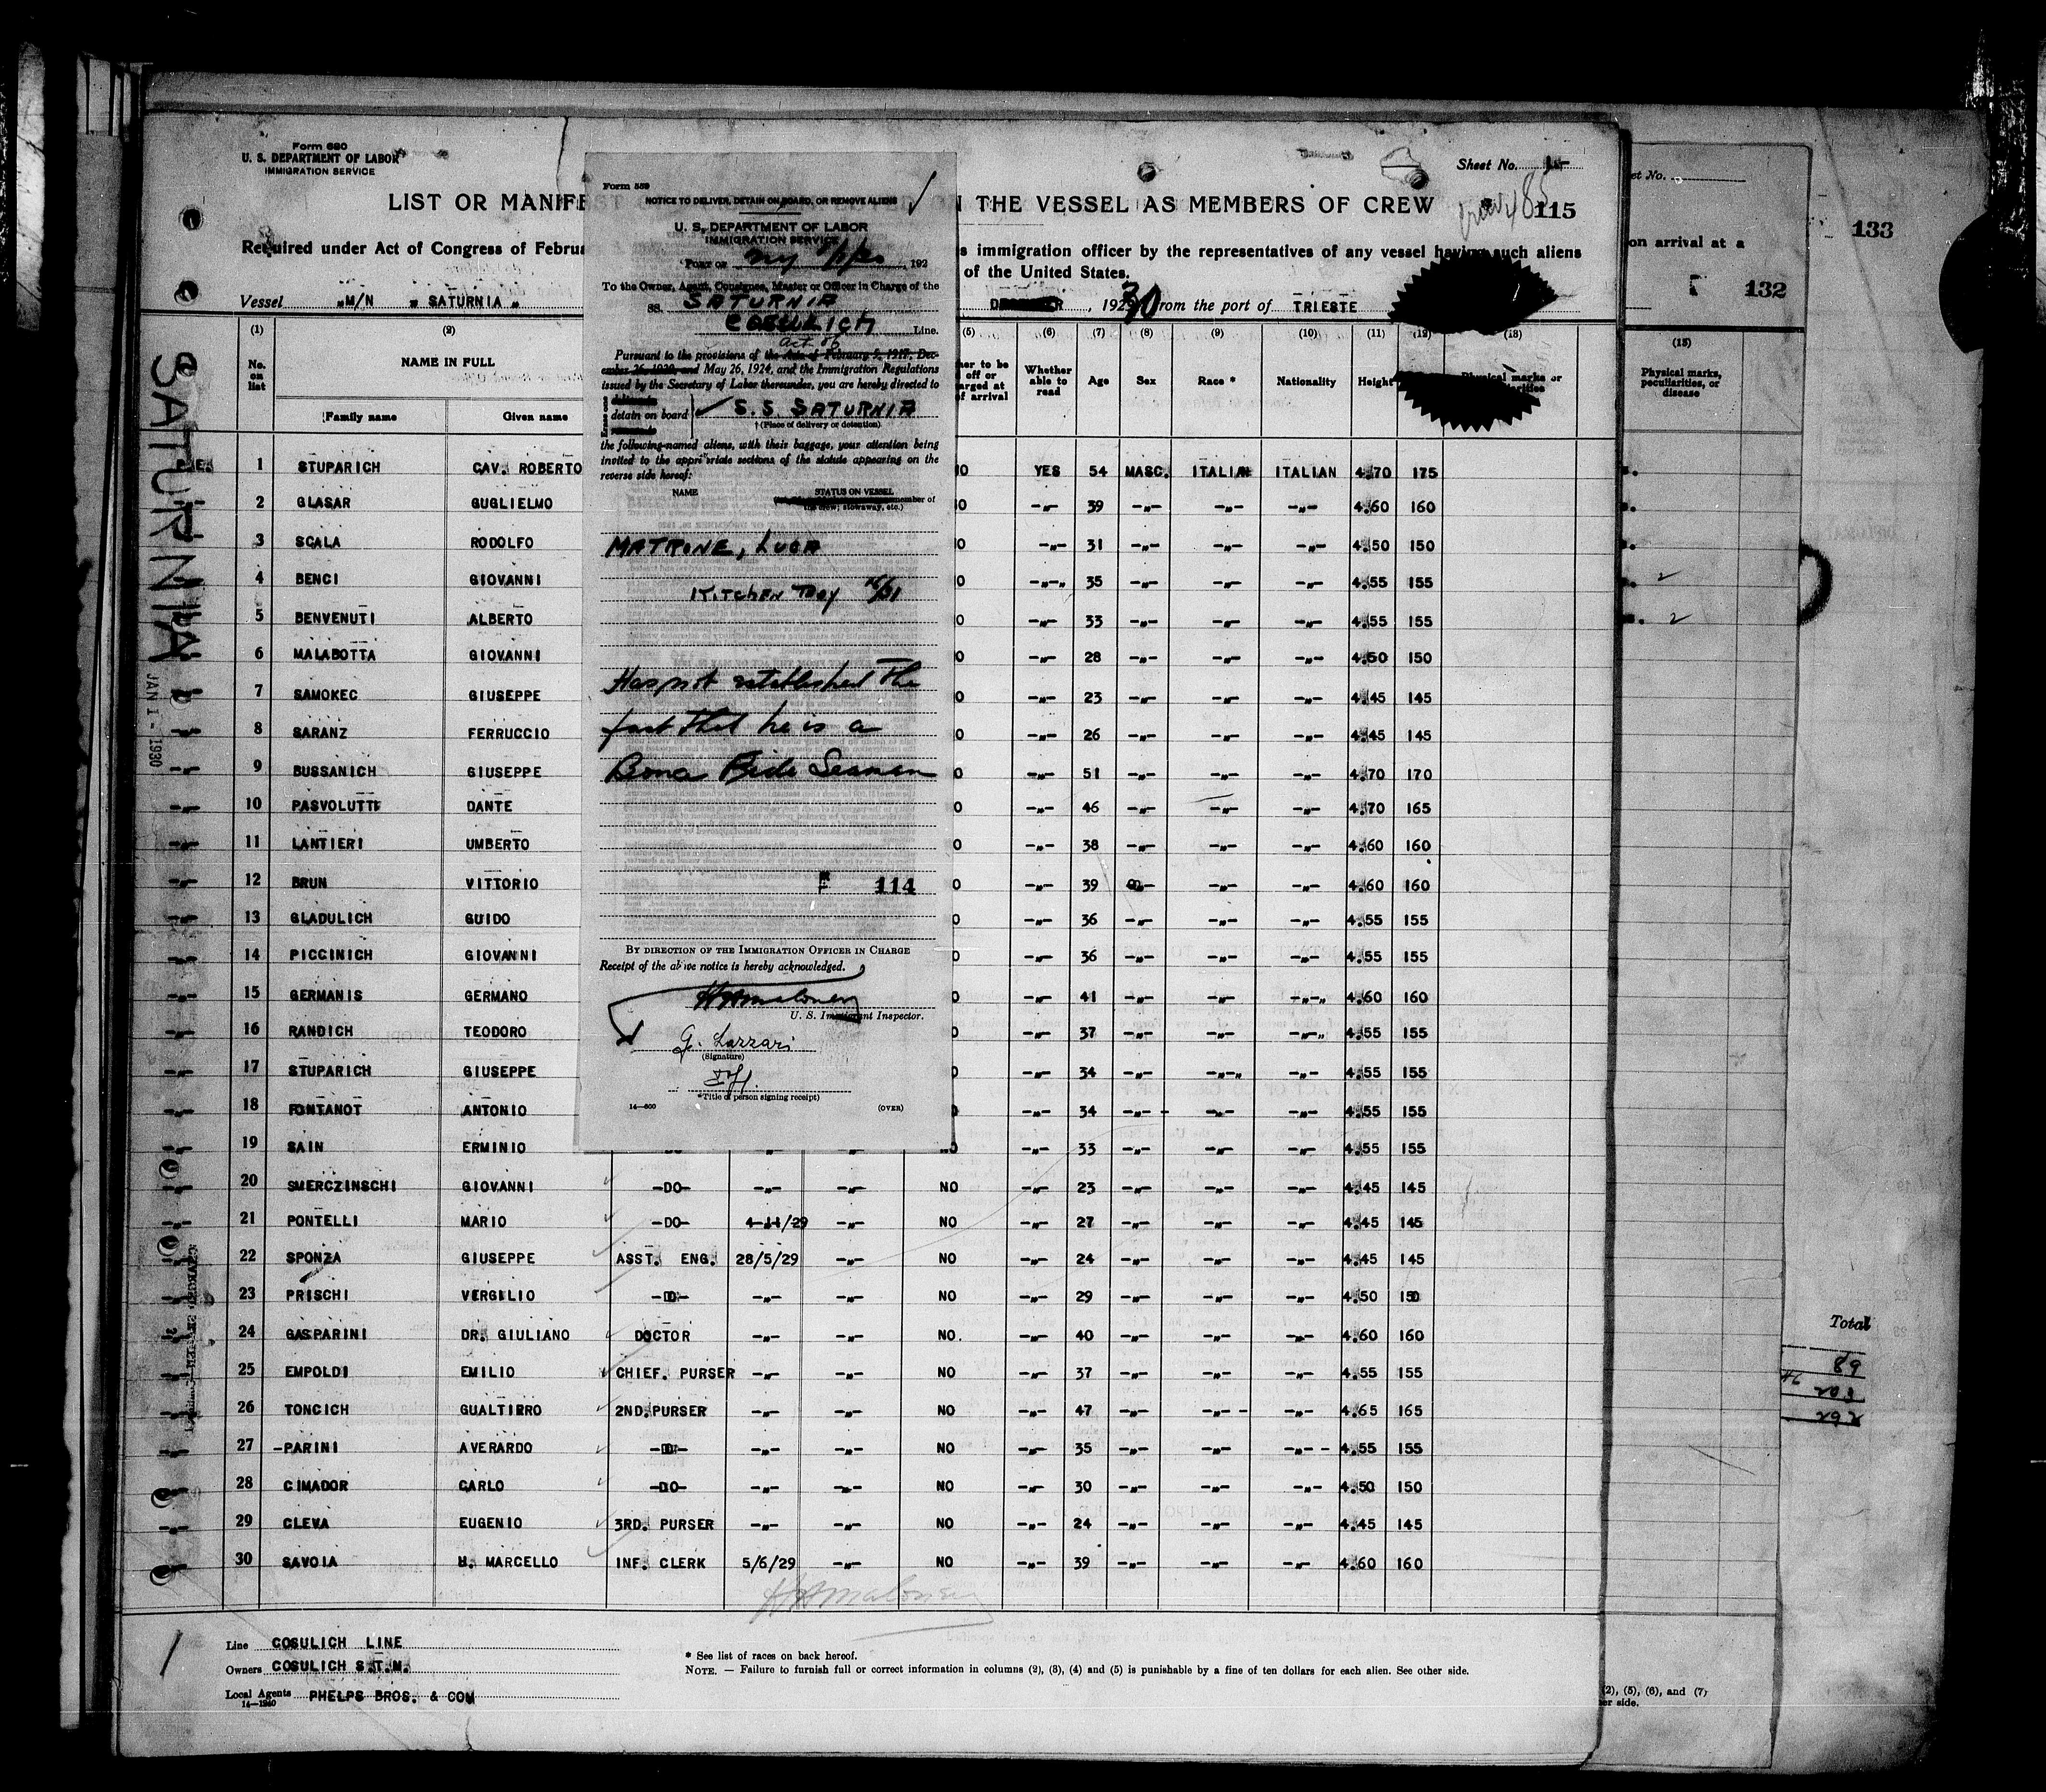 Form 680
U. S. DEPARTMENT OF LABOR
IMMIGRATION SERVICE
Sheet No. 1
LIST OR MANIFE
N THE VESSEL AS MEMBERS OF CREW
115
Required under Act of Congress of Februa
s immigration officer by the representatives of any vessel having such aliens
of the United States.
Vessel „M/N „ SATURNIA „
, 1930 from the port of TRIESTE
(1) (2) (5) (6) (7) (8) (9) (10) (11) (12) (13)
No. on list NAME IN FULL Family name Given name
Whether able to read Age Sex Race * Nationality Height Physical marks or
Form 559
NOTICE TO DELIVER, DETAIN ON BOARD, OR REMOVE ALIENS
U. S. DEPARTMENT OF LABOR
IMMIGRATION SERVICE
Port of NY 1/1/30, 192
To the Owner, Agent, Consignee, Master or Officer in Charge of the
SS. SATURNIA
COSULICH Line.
Act of
Pursuant to the provisions of the Acts of February 5, 1917, Dec-
ember 26, 1920, and May 26, 1924, and the Immigration Regulations
issued by the Secretary of Labor thereunder, you are hereby directed to
detain on board S.S. SATURNIA
† (Place of delivery or detention)
the following-named aliens, with their baggage, your attention being
invited to the appropriate sections of the statute appearing on the
reverse side hereof:
NAME STATUS ON VESSEL
member of
the crew; stowaway, etc.)
MATRONE, LUCA
Kitchen Boy
Has not established the
fact that he is a
Bona Fide Seaman
114
BY DIRECTION OF THE IMMIGRATION OFFICER IN CHARGE
Receipt of the above notice is hereby acknowledged.
HAMaloney
U. S. Immigrant Inspector.
G. Lazzari
(Signature)
*Title of person signing receipt)
14—600 (OVER)
1 STUPARICH CAV. ROBERTO YES 54 MASC. ITALIAN ITALIAN 4.70 175
2 GLASAR GUGLIELMO -„- 39 -„- -„- -„- 4.60 160
3 SCALA RODOLFO -„- 31 -„- -„- -„- 4.50 150
4 BENCI GIOVANNI -„- 35 -„- -„- -„- 4.55 155
5 BENVENUTI ALBERTO -„- 33 -„- -„- -„- 4.55 155
6 MALABOTTA GIOVANNI -„- 28 -„- -„- -„- 4.50 150
7 SAMOKEC GIUSEPPE -„- 23 -„- -„- -„- 4.45 145
8 SARANZ FERRUCCIO -„- 26 -„- -„- -„- 4.45 145
9 BUSSANICH GIUSEPPE -„- 51 -„- -„- -„- 4.70 170
10 PASVOLUTTI DANTE -„- 46 -„- -„- -„- 4.70 165
11 LANTIERI UMBERTO -„- 38 -„- -„- -„- 4.60 160
12 BRUN VITTORIO -„- 39 -„- -„- -„- 4.60 160
13 GLADULICH GUIDO -„- 36 -„- -„- -„- 4.55 155
14 PICCINICH GIOVANNI -„- 36 -„- -„- -„- 4.55 155
15 GERMANIS GERMANO -„- 41 -„- -„- -„- 4.60 160
16 RANDICH TEODORO -„- 37 -„- -„- -„- 4.55 155
17 STUPARICH GIUSEPPE -„- 34 -„- -„- -„- 4.55 155
18 FONTANOT ANTONIO -„- 34 -„- -„- -„- 4.55 155
19 SAIN ERMINIO -„- 33 -„- -„- -„- 4.55 155
20 SMERCZINSCHI GIOVANNI -DO- -„- -„- NO -„- 23 -„- -„- -„- 4.45 145
21 PONTELLI MARIO -DO- 4-11/29 -„- NO -„- 27 -„- -„- -„- 4.45 145
22 SPONZA GIUSEPPE ASST. ENG. 28/5/29 -„- NO -„- 24 -„- -„- -„- 4.45 145
23 PRISCHI VERGILIO -D- -„- -„- NO -„- 29 -„- -„- -„- 4.50 150
24 GASPARINI DR. GIULIANO DOCTOR -„- -„- NO. -„- 40 -„- -„- -„- 4.60 160
25 EMPOLDI EMILIO CHIEF. PURSER -„- -„- NO -„- 37 -„- -„- -„- 4.55 155
26 TONCICH GUALTIERO 2ND.PURSER -„- -„- NO -„- 47 -„- -„- -„- 4.65 165
27 -PARINI AVERARDO -D- -„- -„- NO -„- 35 -„- -„- -„- 4.55 155
28 CIMADOR CARLO -DO- -„- -„- NO -„- 30 -„- -„- -„- 4.50 150
29 CLEVA EUGENIO 3RD. PURSER -„- -„- NO -„- 24 -„- -„- -„- 4.45 145
30 SAVOIA H. MARCELLO INF. CLERK 5/6/29 -„- NO -„- 39 -„- -„- -„- 4.60 160
HAMaloney
Line COSULICH LINE
Owners COSULICH S.T.N.
Local Agents PHELPS BROS. & COM
14—1240
* See list of races on back hereof.
NOTE. — Failure to furnish full or correct information in columns (2), (3), (4) and (5) is punishable by a fine of ten dollars for each alien. See other side.
SATURNIA
JAN 1 - 1930
et No.
133
on arrival at a
132
(15)
Physical marks, peculiarities, or disease
Total
89
203
292
(2), (5), (6), and (7)
er side.